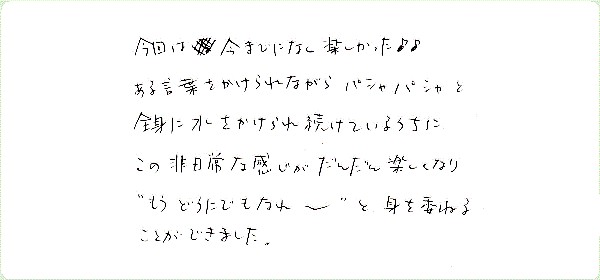 今回は 今までになし 楽しかった♪♪
ある言葉をかけられながら パシャパシャと
全身に水をかけられ続けているうちに
この非日常な感じが だんだん楽しくなり
"もう どうにでもなれ〜"と、身を委ねる
ことができました。